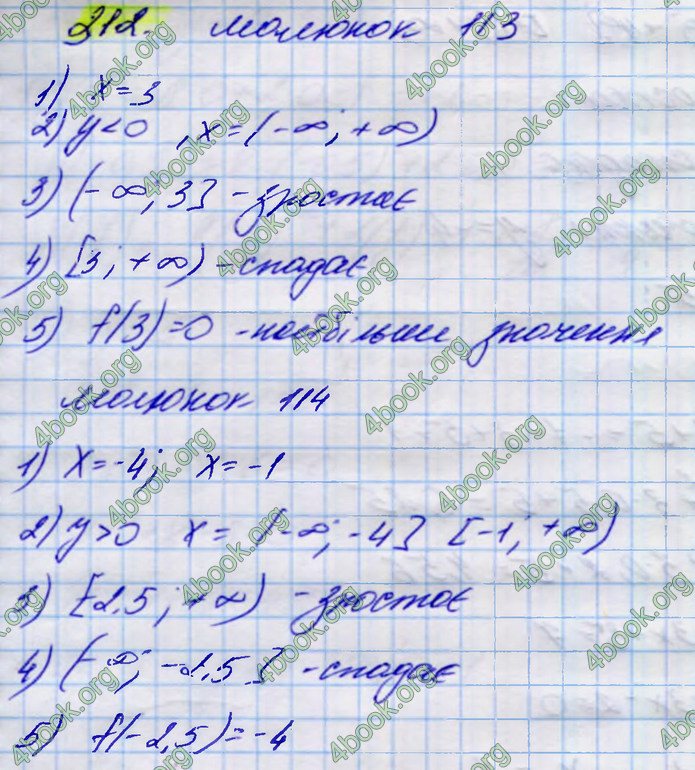 212. малюнок 113
1) x = 3
2) y < 0 , x = (-∞; +∞)
3) (-∞; 3] - зростає
4) [3; +∞) - спадає
5) f(3) = 0 - найбільше значення
малюнок 114
1) x = -4; x = -1
2) y > 0 x = (-∞; -4] [-1; +∞)
3) [-2,5; +∞) - зростає
4) (-∞; -2,5] - спадає
5) f(-2,5) = -4
4book.org